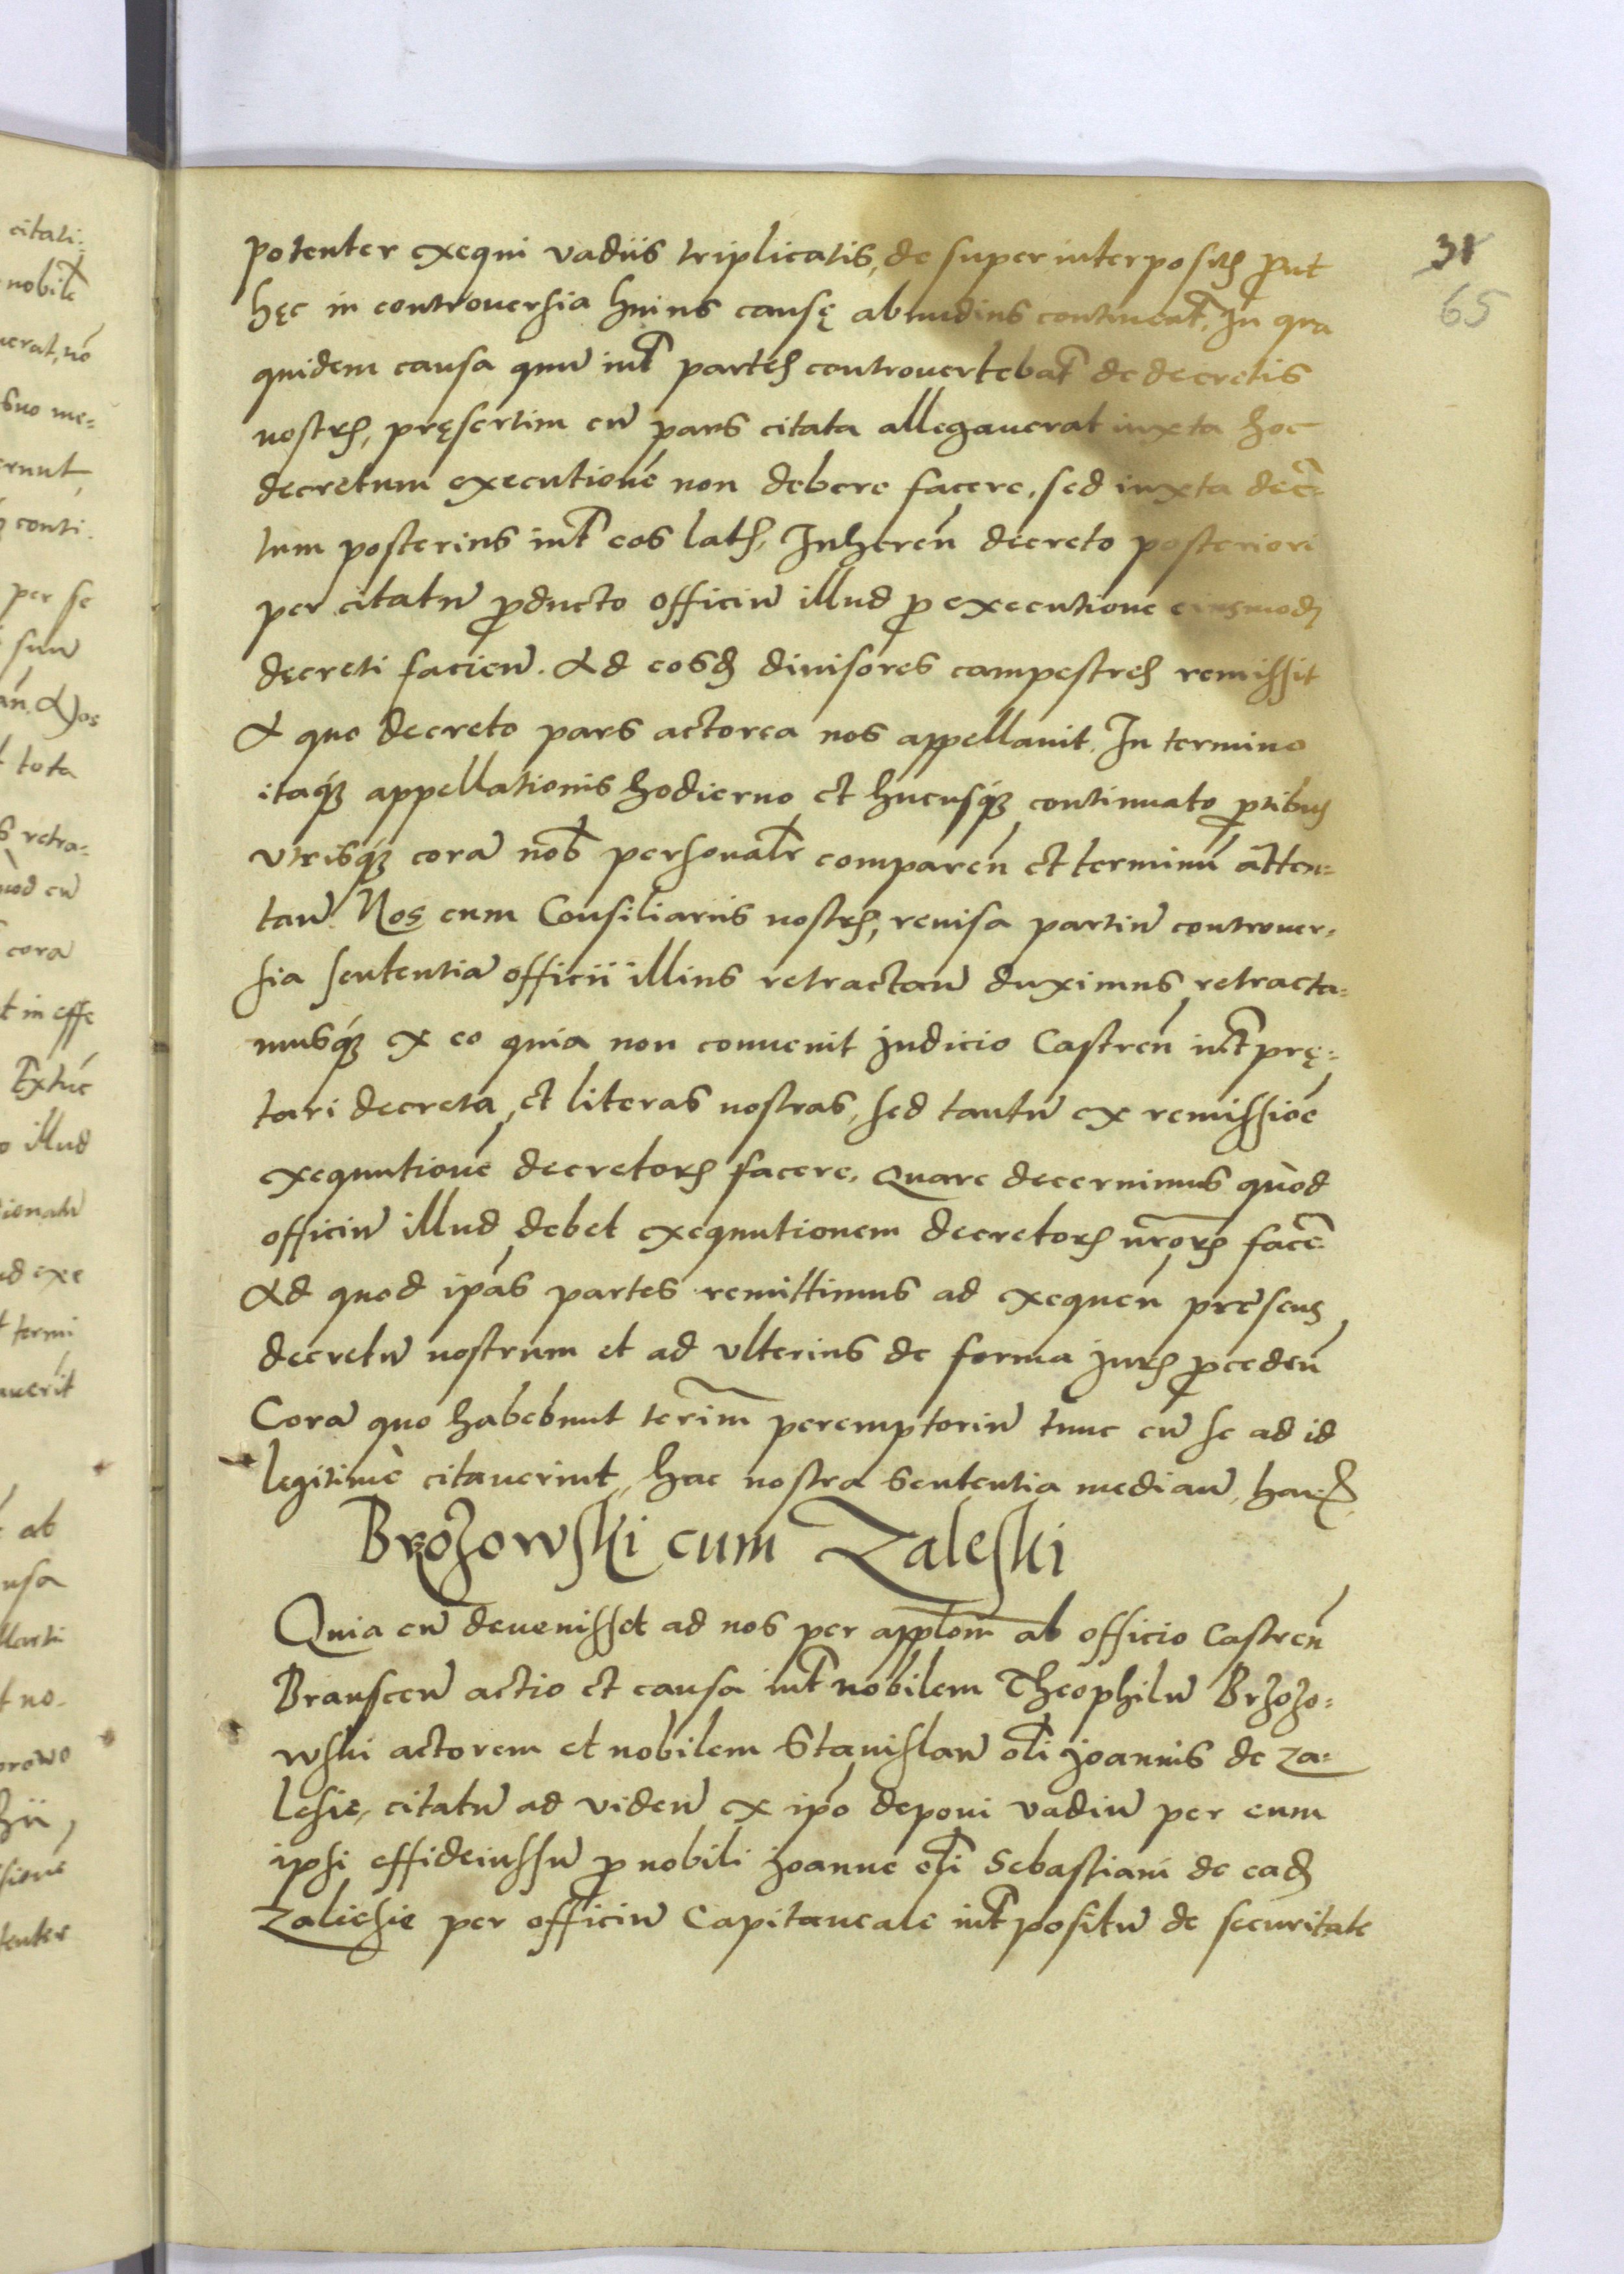 citati:
nobilē
uerat, nō
suo me-
erunt,
conti.
per se
suū
os
tota
retra-
cū
corā
t in effe
Extūc
illud
ad exe
termi
auerit
ab
usa
t no-
orowo
31
65
potenter exequi vadiis triplicatis, de super interpositis prout
hęc in controuersia huius causę abundius continentr̄. In qua
quidem causa quū int̄ partes controuertebat̄ de decretis
nostris, pręsertim cū pars citata allegauerat iuxta hoc
decretum executionē non debere facere, sed iuxta decr̄-
tum posterius int̄ eos latū. Inheren̄ decreto posteriori
per citatū producto officiū illud pro executione eiusmodi
decreti facien̄. Ad eosdē diuisores campestres remissit
A quo decreto pars actorea nos appellauit. In termino
itaq́ue appellationis hodierno et hucusq́ue continuato ptibus
vtrisq́ue corā nob̄ personalr̄ comparen̄ et terminū atten-
tan̄. Nos cum Consiliariis nostris, reuisa partiū controuer-
sia sententiā officii illius retractan̄ duximus, retracta-
musq́ue ex eo quia non conuenit Judicio Castren̄ int̄prę-
tari decreta, et literas nostras, sed tantū ex remissiōe
exequutionē decretorum facere, Quare decernimus quòd
officiū illud debet exequutionem decretorum nr̄orum facēr
Ad quod ip̄as partes remittimus ad exequen̄ pręsens
decretū nostrum et ad vlterius de forma juris proceden̄
Corā quo habebunt terīm peremptoriū tunc cū se ad id
legitimè citauerint, hac nostra sententia median̄, har
Brozowski cum Zaleski
Quia cū deuenisset ad nos per applōm ab officio Castren̄
Branscen̄ actio et causa int̄ nobilem Theophilū Brzozo-
wski actorem et nobilem Stanislaū ol̄i Joannis de Za-
lesie, citatū ad viden̄ ex ip̄o deponi vadiū per eum
ipsi effideiussū pro nobili Joanne ol̄i Sebastiani de eadē
Zaliesie per officiū Capitaneale int̄positū de securitate